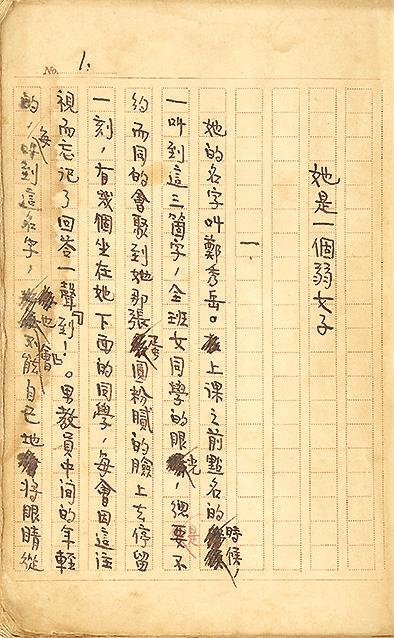 No. 1.
她是一個弱女子
一
她的名字叫鄭秀岳。上課之前點名的時候,
一叫到這三箇字,全班女同學的眼光,總是要不
約而同的會聚到她那張蛋圓粉膩的臉上去停留
一刻,有幾個坐在她下面的同學,每會因這注
視而忘記了回答一聲『到!』。男教員中间的年輕
的,每叫到這名字,也會不能自已地將眼睛從